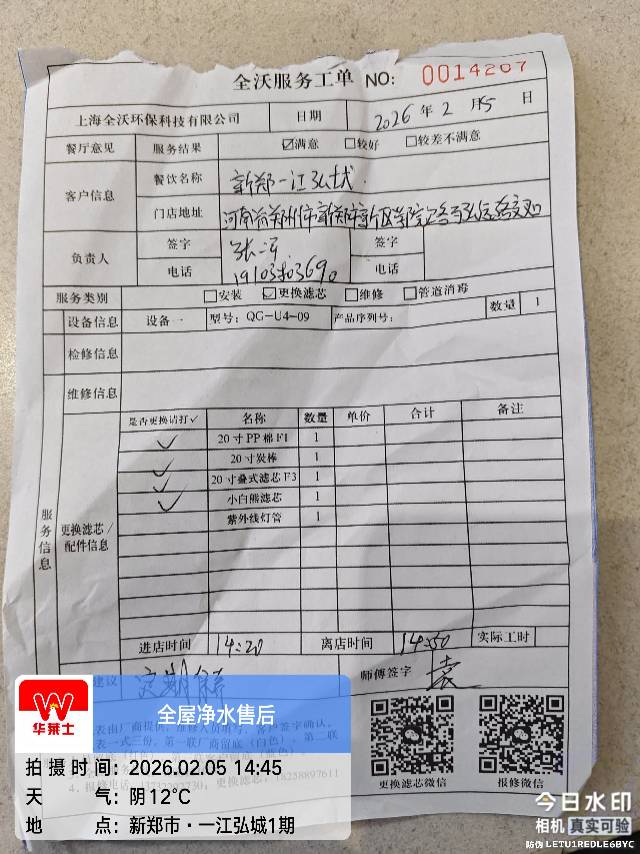 全沃服务工单 NO: 0014207
上海全沃环保科技有限公司 日期 2026年2月5日
餐厅意见 服务结果 ☑满意 ☐较好 ☐较差不满意
客户信息 餐饮名称 新郑一江弘城
门店地址 河南省郑州市新郑市新区学院路与弘远路交叉
负责人 签字 签字
电话 电话
服务类别 ☐安装 ☑更换滤芯 ☐维修 ☐管道消毒
设备信息 设备一 型号: QG-U4-09 产品序列号: 数量 1
检修信息
维修信息
服务信息
更换滤芯/配件信息
是否更换请打✓ 名称 数量 单价 合计 备注
✓ 20寸PP棉F1 1
✓ 20寸炭棒 1
✓ 20寸叠式滤芯F3 1
✓ 小白熊滤芯 1
紫外线灯管 1
进店时间 14:20 离店时间 14:50 实际工时
建议 定期保养 师傅签字 袁
更换滤芯微信 报修微信
华莱士
全屋净水售后
拍摄时间: 2026.02.05 14:45
天气: 阴12℃
地点: 新郑市·一江弘城1期
今日水印
相机 真实可验
防伪 LETU1REDLE6BYC